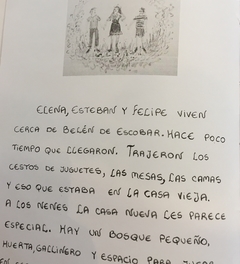 ELENA, ESTEBAN Y FELIPE VIVEN
CERCA DE BELÉN DE ESCOBAR. HACE POCO
TIEMPO QUE LLEGARON. TRAJERON LOS
CESTOS DE JUGUETES, LAS MESAS, LAS CAMAS
Y ESO QUE ESTABA EN LA CASA VIEJA.
A LOS NENES LA CASA NUEVA LES PARECE
ESPECIAL. HAY UN BOSQUE PEQUEÑO,
HUERTA, GALLINERO Y ESPACIO PARA JUGAR